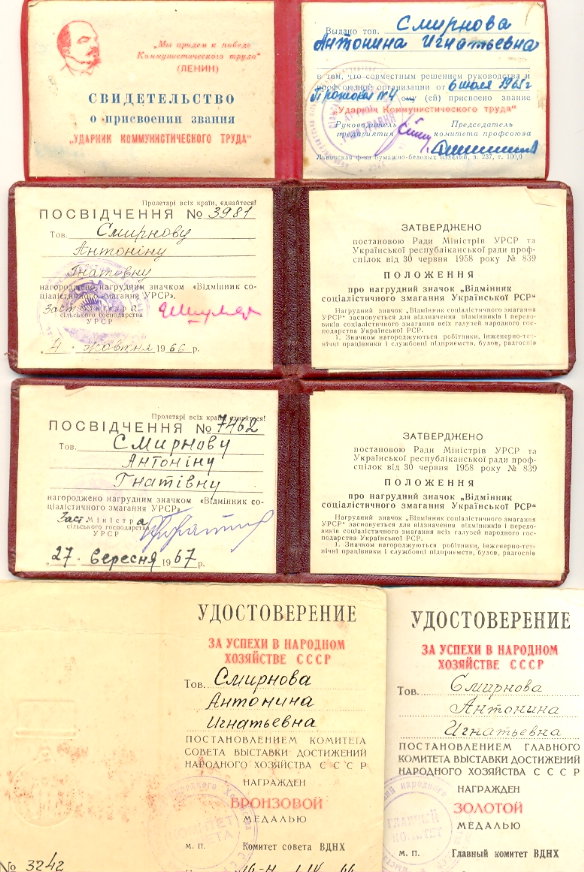 "Мы придем к победе
Коммунистического труда"
(ЛЕНИН)
СВИДЕТЕЛЬСТВО
о присвоении звания
"УДАРНИК КОММУНИСТИЧЕСКОГО ТРУДА"
Выдано тов. Смирнова
Антонина Игнатьевна
в том, что совместным решением руководства и
профсоюзной организации от 6 июля 1965 г
ей) присвоено звание
"Ударник Коммунистического труда"
Руководитель Председатель
предприятия комитета профсоюза
Пролетарі всіх країн, єднайтеся!
ПОСВІДЧЕННЯ № 3981
Тов. Смирнову
Антоніну
Гнатовну
нагороджено нагрудним значком «Відмінник со-
ціалістичного змагання УРСР».
Заст.
сільського господарства
УРСР
4 жовтня 1966 р.
ЗАТВЕРДЖЕНО
постановою Ради Міністрів УРСР та
Української республіканської ради проф-
спілок від 30 червня 1958 року № 839
ПОЛОЖЕННЯ
про нагрудний значок „Відмінник
соціалістичного змагання Української РСР“
Нагрудний значок „Відмінник соціалістичного змагання
УРСР“ засновується для відзначення відмінників і перемож-
ців соціалістичного змагання всіх галузей народного
господарства Української РСР.
1. Значком нагороджуються робітники, інженерно-техні-
чні працівники і службовці підприємств, будов, радгоспів
Пролетарі всіх країн, єднайтеся!
ПОСВІДЧЕННЯ № 7462
Тов. Смирнову
Антоніну
Гнатівну
нагороджено нагрудним значком «Відмінник со-
ціалістичного змагання УРСР».
Заст Міністра
сільського господарства
УРСР
27 вересня 1967 р.
ЗАТВЕРДЖЕНО
постановою Ради Міністрів УРСР та
Української республіканської ради проф-
спілок від 30 червня 1958 року № 839
ПОЛОЖЕННЯ
про нагрудний значок „Відмінник
соціалістичного змагання Української РСР“
Нагрудний значок „Відмінник соціалістичного змагання
УРСР“ засновується для відзначення відмінників і перемож-
ців соціалістичного змагання всіх галузей народного госпо-
дарства Української РСР.
1. Значком нагороджуються робітники, інженерно-тех-
нічні працівники і службовці підприємств, будов, радгоспів
УДОСТОВЕРЕНИЕ
ЗА УСПЕХИ В НАРОДНОМ
ХОЗЯЙСТВЕ СССР
Тов. Смирнова
Антонина
Игнатьевна
ПОСТАНОВЛЕНИЕМ КОМИТЕТА
СОВЕТА ВЫСТАВКИ ДОСТИЖЕНИЙ
НАРОДНОГО ХОЗЯЙСТВА СССР
НАГРАЖДЕН
БРОНЗОВОЙ
МЕДАЛЬЮ
М. П. Комитет совета ВДНХ
№ 3242
УДОСТОВЕРЕНИЕ
ЗА УСПЕХИ В НАРОДНОМ
ХОЗЯЙСТВЕ СССР
Тов. Смирнова
Антонина
Игнатьевна
ПОСТАНОВЛЕНИЕМ ГЛАВНОГО
КОМИТЕТА ВЫСТАВКИ ДОСТИЖЕНИЙ
НАРОДНОГО ХОЗЯЙСТВА СССР
НАГРАЖДЕН
ЗОЛОТОЙ
МЕДАЛЬЮ
ГЛАВНЫЙ
КОМИТЕТ
М. П. Главный комитет ВДНХ